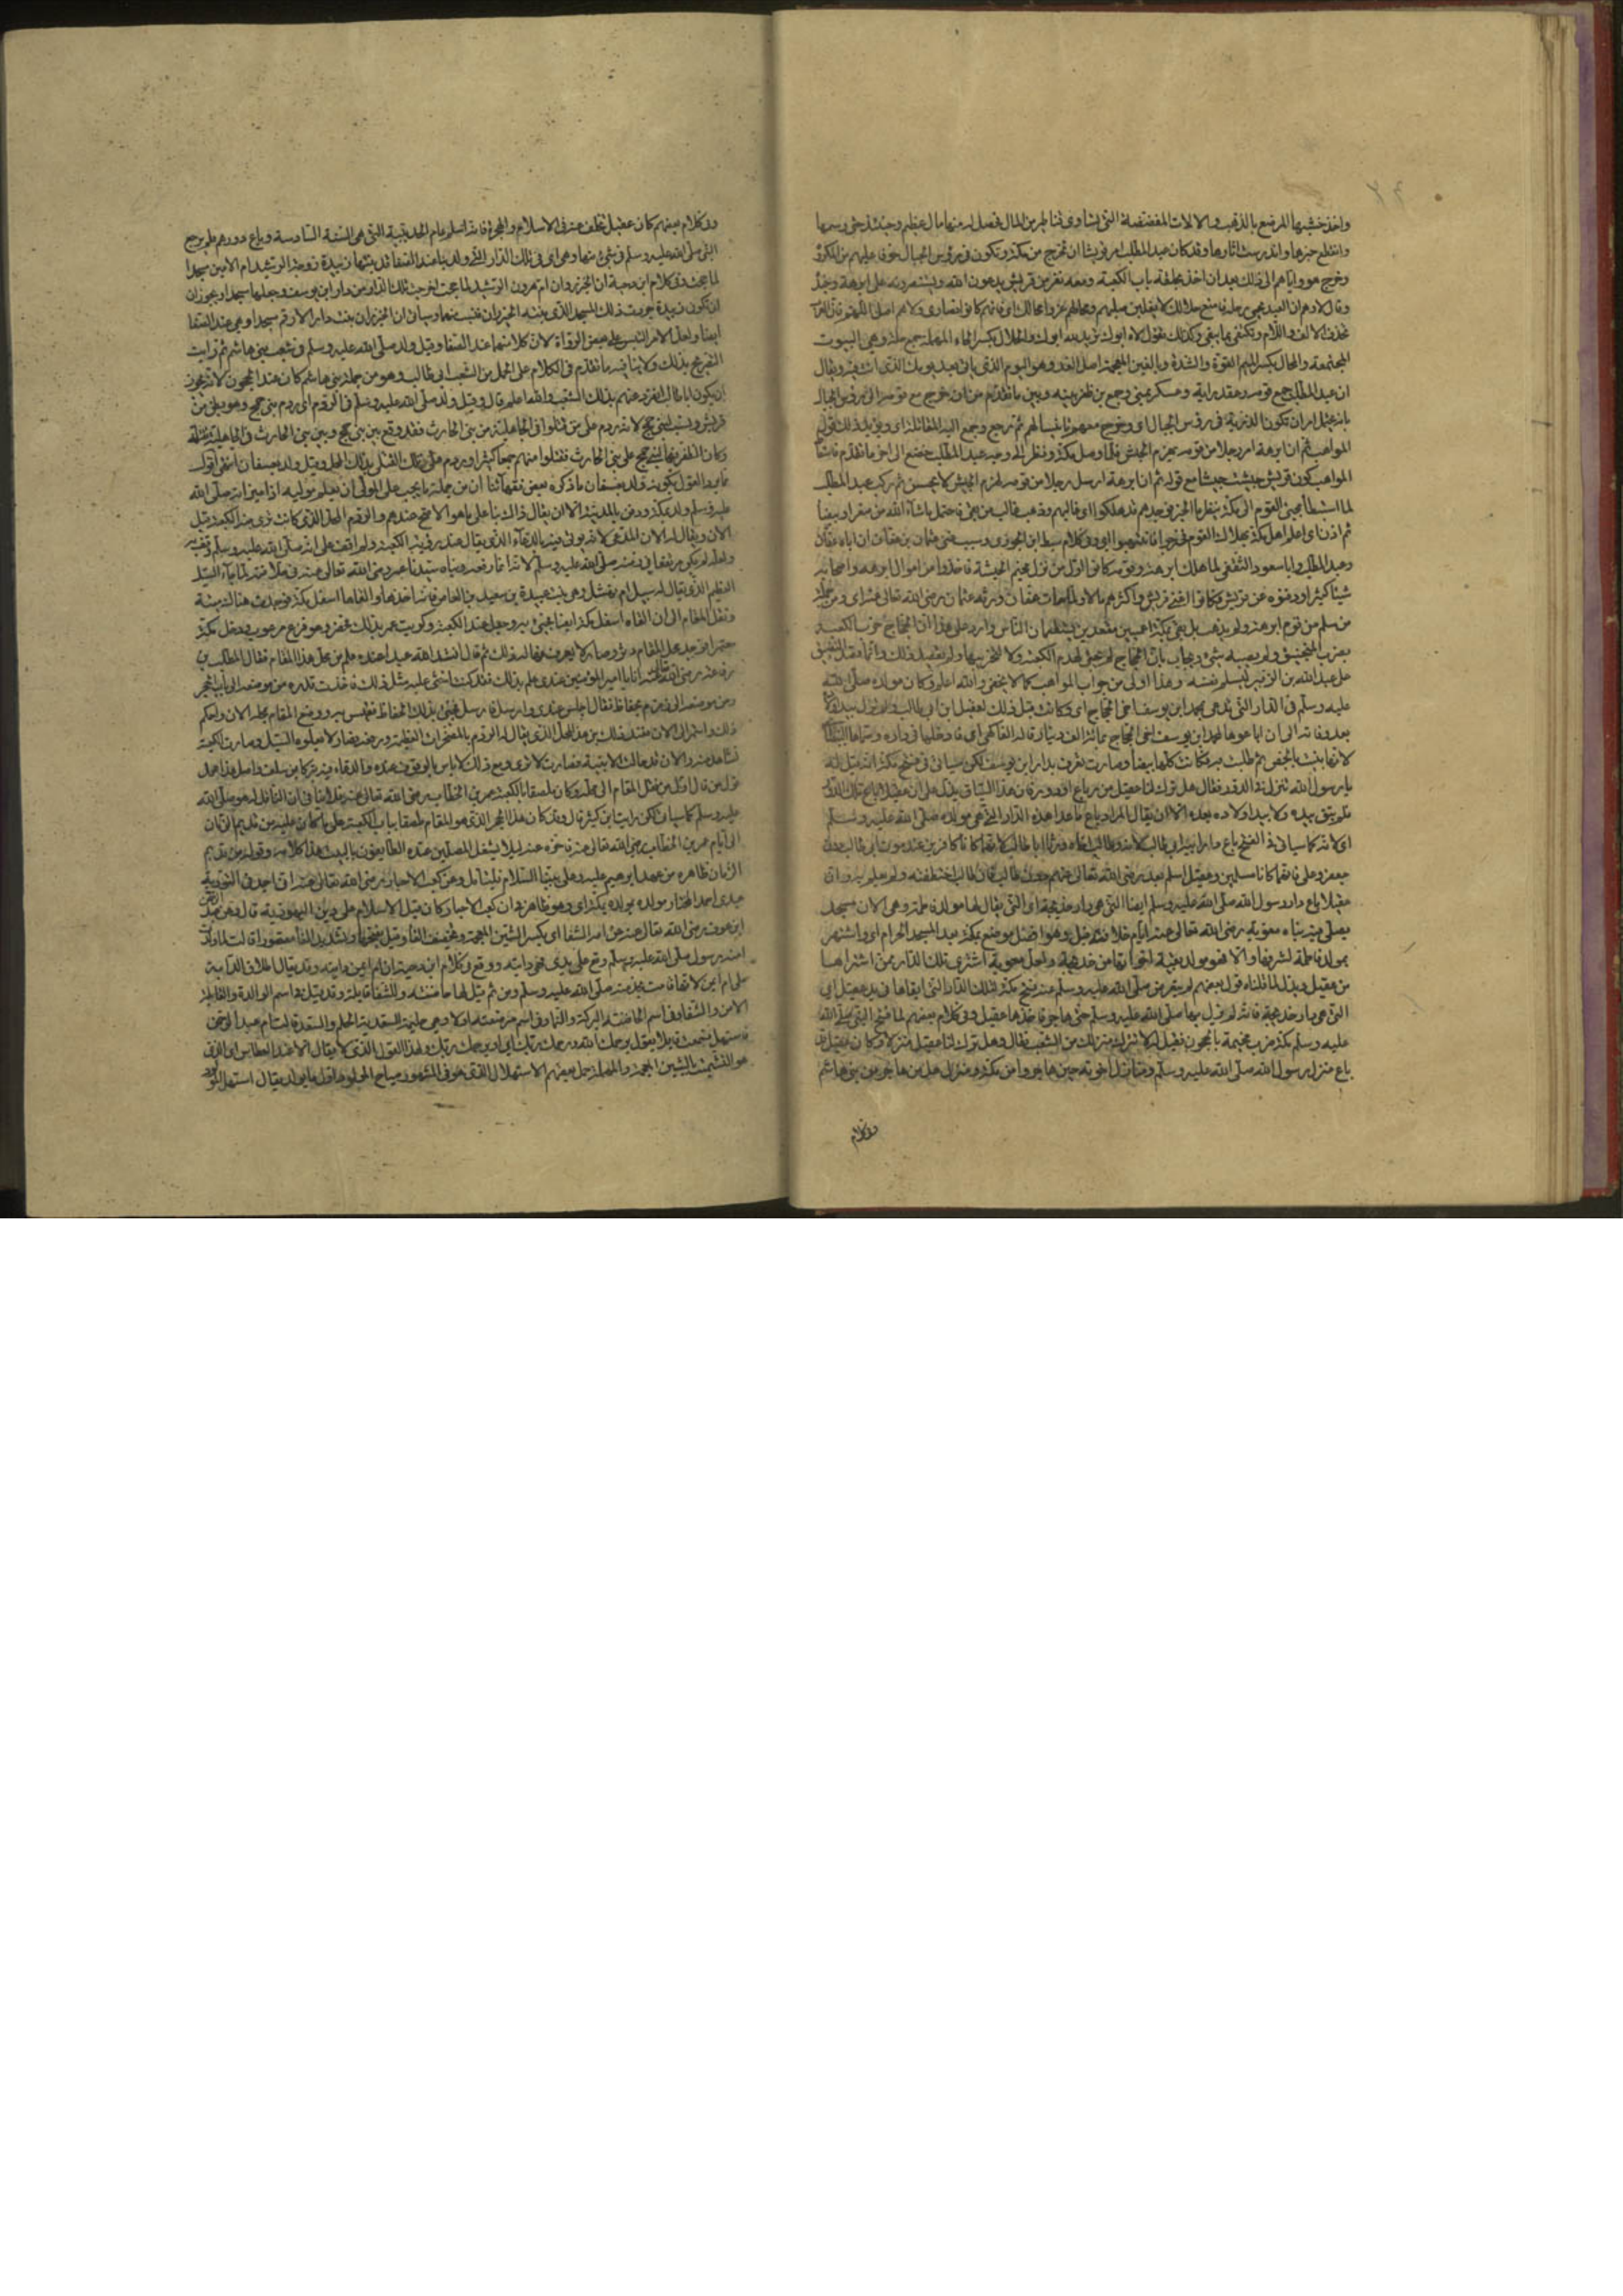 واخذ خشبها المرصع بالذهب والالات المفضضة التي تساوي قناطير من المال فحصل له منها مال عظيم وحينئذ عفى رسمها
وانقطع خبرها واندرست اثارها وقد كان عبد المطلب امر قريشا ان تخرج من مكة وتكون في رؤس الجبال خوفا عليهم من المعرة
وخرج هو واياهم الى ذلك بعد ان اخذ بحلقة باب الكعبة ومعه نفر من قريش يدعون الله ويستنصرونه على ابرهة وجنده
وقال لاهم ان العبد يحمي رحله فامنع حلالك لا يغلبن صليبهم ومحالهم غدوا محالك اي فانهم كانوا نصارى ولاهم اصله اللهم فان العرب
تحذف الالف واللام وتكتفي بما يبقى وكذلك تقول لاه ابوك تريد لله ابوك والحلال بكسر الحاء المهملة جمع حلة وهي البيوت
المجتمعة والمحال بكسر الميم القوة والشدة وبالغين المعجمة اصل الغد وهو اليوم الذي ياتي بعد يومك الذي انت فيه ويقال
ان عبد المطلب جمع قومه وعقد راية وعسكر بمنى وجمع بن ظفر بينه وبين ما تقدم من انه خرج مع قومه الى رؤس الجبال
بانه يحتمل ان تكون الذرية في رؤس الجبال اي وخرج معهم تانيسا لهم ثم رجع وجمع اليه المقاتلة اي ويؤيد ذلك قول
المواهب ثم ان ابرهة امر رجلا من قومه يهزم الجيش فلما وصل مكة ونظر الى وجه عبد المطلب خضع الى اخر ما تقدم
المواهب كون قريش جيشت جيشا مع قوله ثم ان ابرهة ارسل رجلا من قومه ليهزم الجيش لا يحسن ثم ركب عبد المطلب
لما استبطأ مجيئ القوم الى مكة ينظر ما الخبر فوجدهم قد هلكوا اي غالبهم وذهب غالب من بقي فاحتمل ما شاء الله من صفرا وبيضا
ثم اذن اي اعلم اهل مكة بهلاك القوم فخرجوا فانتهبوا اي وفي كلام سبط ابن الجوزي وسبب غنى عثمان بن عفان ان اباه عفان
وعبد المطلب وابا مسعود الثقفي لما هلك ابرهة وقومه كانوا اول من نزل مخيم الحبشة فاخذوا من اموال ابرهه واصحابه
شيئا كثيرا ودفنوه عن قريش فكانوا اغنى قريش واكثرهم مالا ولما مات عفان ورثه عثمان رضي الله تعالى عنه اي ومن جملة
من سلم من قوم ابرهة ولم يذهب بل بقي بمكة اعميين مقعدين يستطعمان الناس واورد على هذا ان الحجاج خرب الكعبة
بضرب المنجنيق ولم يصبه شيء ويجاب بان الحجاج لم يجئ لهدم الكعبة ولا لتخريبها ولم يقصد ذلك وانما قصد التضييق
على عبد الله بن الزبير ليسلم نفسه وهذا اولى من جواب المواهب كما لا يخفى والله اعلم وكان مولده صلى الله
عليه وسلم في الدار التي تدعى لمحمد ابن يوسف اخي الحجاج اي وكانت قبل ذلك لعقيل ابن ابي طالب ولم تزل بيد اولاده
بعد وفاته الى ان باعوها لمحمد ابن يوسف اخي الحجاج بمائة الف دينار قاله الفاكهي اي فادخلها في داره وسماها البيضا
لانها بنيت بالجص ثم طليت به فكانت كلها بيضا وصارت تعرف بدار ابن يوسف لكن سياتي في فتح مكة انه قيل له
يا رسول الله تنزل في الدور فقال هل ترك لنا عقيل من رباع او دور فان هذا السياق يدل على ان عقيلا باع تلك الدار
فلم تبق بيده ولا بيد اولاده بعده الا ان يقال المراد باع ما عدا هذه الدار التي هي مولده صلى الله عليه وسلم
اي لانه كما سياتي في الفتح باع دار ابيه ابي طالب لانه وطالب اخاه ورثا ابا طالب لانهما كانا كافرين عند موت ابي طالب دون
جعفر وعلي فانهما كانا مسلمين وعقيل اسلم بعد رضي الله تعالى عنهم دون طالب فان طالب اختطفته الجن ولم يعلم به وان
عقيلا باع دار رسول الله صلى الله عليه وسلم ايضا التي هي دار خديجة اي التي يقال لها مولد فاطمة وهي الان مسجد
يصلى فيه بناه معوية رضي الله تعالى عنه ايام خلافته قيل وهو افضل موضع بمكة بعد المسجد الحرام اي واشتهر
بمولد فاطمة لشرفها والا فهو مولد بقية اخوتها من خديجة ولعل معوية اشترى تلك الدار ممن اشتراها
من عقيل ويدل لما قلناه قول بعضهم لم يتعرض صلى الله عليه وسلم عند فتح مكة لتلك الدار التي ابقاها في يد عقيل اي
التي هي دار خديجة فانه لم يزل بها صلى الله عليه وسلم حتى هاجر فاخذها عقيل وفي كلام بعضهم لما فتح النبي صلى الله
عليه وسلم مكة ضرب مخيمه بالحجون فقيل له الا تنزل منزلك من الشعب فقال وهل ترك لنا عقيل منزلا وكان عقيل قد
باع منزل رسول الله صلى الله عليه وسلم ومنازل اخوته حين هاجروا من مكة ومنزل كل من هاجر من بني هاشم
وفي كلام
وفي كلام بعضهم كان عقيل تخلف عنه في الاسلام والهجرة فانه اسلم عام الحديبية التي هي السنة السادسة وباع دورهم فلم يرجع
النبي صلى الله عليه وسلم في شيء منها وهي اي تلك الدار التي ولد بها عند الصفا قد بنتها زبيدة زوجة الرشيد ام الامين مسجدا
لما حجت وفي كلام ابن دحية ان الخيزران ام هرون الرشيد لما حجت اخرجت تلك الدار من دار ابن يوسف وجعلتها مسجدا ويجوز ان
ان تكون زبيدة جددت ذلك المسجد الذي بنته الخيزران فنسب لهما وسياتي ان الخيزران بنت دار الارقم مسجدا وهي عند الصفا
ايضا ولعل الامر التبس على بعض الرواة لان كلا منهما عند الصفا وقيل ولد صلى الله عليه وسلم في شعب بني هاشم ثم رايت
التصريح بذلك ولا ينافيه ما تقدم في الكلام على الحمل من الشعب ابي طالب وهو من جملة بني هاشم كان عند الحجون لانه يجوز
ان يكون ابا طالب انفرد عنهم بذلك الشعب والله اعلم قال وقيل ولد صلى الله عليه وسلم في الردم اي ردم بني جمح وهم بطن من
قريش ونسب لبني جمح لانه ردم على من قتلوا في الجاهلية من بني الحارث فقد وقع بين بني جمح وبين بني الحارث في الجاهلية مقتلة
وكان الظفر فيها لبني جمح على بني الحارث فقتلوا منهم جمعا كثيرا وردم على تلك القتلى بذلك المحل وقيل ولد بعسفان انتهى اقول
مما يرد القول بكونه ولد بعسفان ما ذكره بعض فقهائنا ان من جملة ما يجب على الولي ان يعلم موليه اذا ميز انه صلى الله
عليه وسلم ولد بمكة ودفن بالمدينة الا ان يقال ذاك بناء على ما هو الاصح عندهم والردم المحل الذي كانت ترى منه الكعبة قبل
الان ويقال له الان المدعى لانه يؤتى فيه بالدعاء الذي يقال عند رؤية الكعبة ولم اقف على انه صلى الله عليه وسلم وقف به
ولعله لم يكن مرتفعا في زمنه صلى الله عليه وسلم لانه انما رفعه وبناه سيدنا عمر رضي الله تعالى عنه في خلافته لما جاء السيل
العظيم الذي يقال له سيل ام نهشل وهي بنت عبيدة بن سعيد بن العاص فانه اخذها والقاها اسفل مكة فوجدت هناك ميتة
ونقل المقام الى ان القاه اسفل مكة ايضا فجيئ به وجعل عند الكعبة وكوتب عمر بذلك فحضر وهو فزع مرعوب ودخل مكة
معتمرا فوجد محل المقام دثر وصار لا يعرف فهاله ذلك ثم قال انشد الله عبدا عنده علم من محل هذا المقام فقال المطلب بن
رفاعة رضي الله تعالى عنه انا يا امير المؤمنين عندي علم بذلك فقد كنت اخشى عليه مثل ذلك فاخذت قدره من موضعه الى باب الحجر
ومن موضعه الى زمزم بحفاظ فقال اجلس عندي وارسل فارسل فجيئ بذلك الحفاظ فقيس به ووضع المقام بمحله الان واحكم
ذلك واستمر الى الان فعند ذلك بنى هذا المحل الذي يقال له الردم بالصخرات العظيمة ورفعه فصار لا يعلوه السيل وصارت الكعبة
تشاهد منه والان قد حالت الابنية فصارت لا ترى ومع ذلك لا باس بالوقوف عنده والدعاء فيه تبركا بمن سلف ولعل هذا محمل
قول من قال اول من نقل المقام الى محله وكان ملصقا بالكعبة عمر بن الخطاب رضي الله تعالى عنه فلا ينافي ان الناقل له هو صلى الله
عليه وسلم كما سياتي لكن رايت ابن كثير قال وقد كان هذا الحجر الذي هو المقام ملصقا بباب الكعبة على ما كان عليه من قديم الزمان
الى ايام عمر بن الخطاب رضي الله تعالى عنه فاخره عنه لئلا يشغل المصلين عنده الطايفون بالبيت هذا كلامه وقوله من قديم
الزمان ظاهره من عهد ابرهيم عليه وعلى نبينا السلام فليتامل وعن كعب الاحبار رضي الله تعالى عنه اني اجد في التورية
عبدي احمد المختار مولده بمكة اي وهو ظاهر في ان كعب الاحبار كان قبل الاسلام على دين اليهودية قال وعن عبد الرحمن
ابن عوف رضي الله تعالى عنه عن امه الشفا اي بكسر الشين المعجمة وتخفيف الفا وقيل بفتحها وتشديد الفا مقصورا قالت لما ولدت
امنة رسول صلى الله عليه وسلم وقع على يدي فهي دايته ووقع في كلام ابن دحية ان ام ايمن دايته وقد يقال اطلاق الداية
على ام ايمن لانها قامت بخدمته صلى الله عليه وسلم ومن ثم قيل لها حاضنته وللشفا قابلته وقد قيل في اسم الوالدة والقابلة
الامن والشفا وفي اسم الحاضنة البركة والنما وفي اسم مرضعته اولا وهي حليمة السعدية الحلم والسعد قالت ام عبد الرحمن
فاستهل فسمعت قايلا يقول يرحمك الله ورحمك ربك اي او يرحمك ربك ولهذا القول الذي لا يقال الا عند العطاس اي الذي
هو التشميت بالشين المعجمة والمهملة حمل بعضهم الاستهلال الذي هو في المشهور صياح المولود اول ما يولد يقال استهل المولود